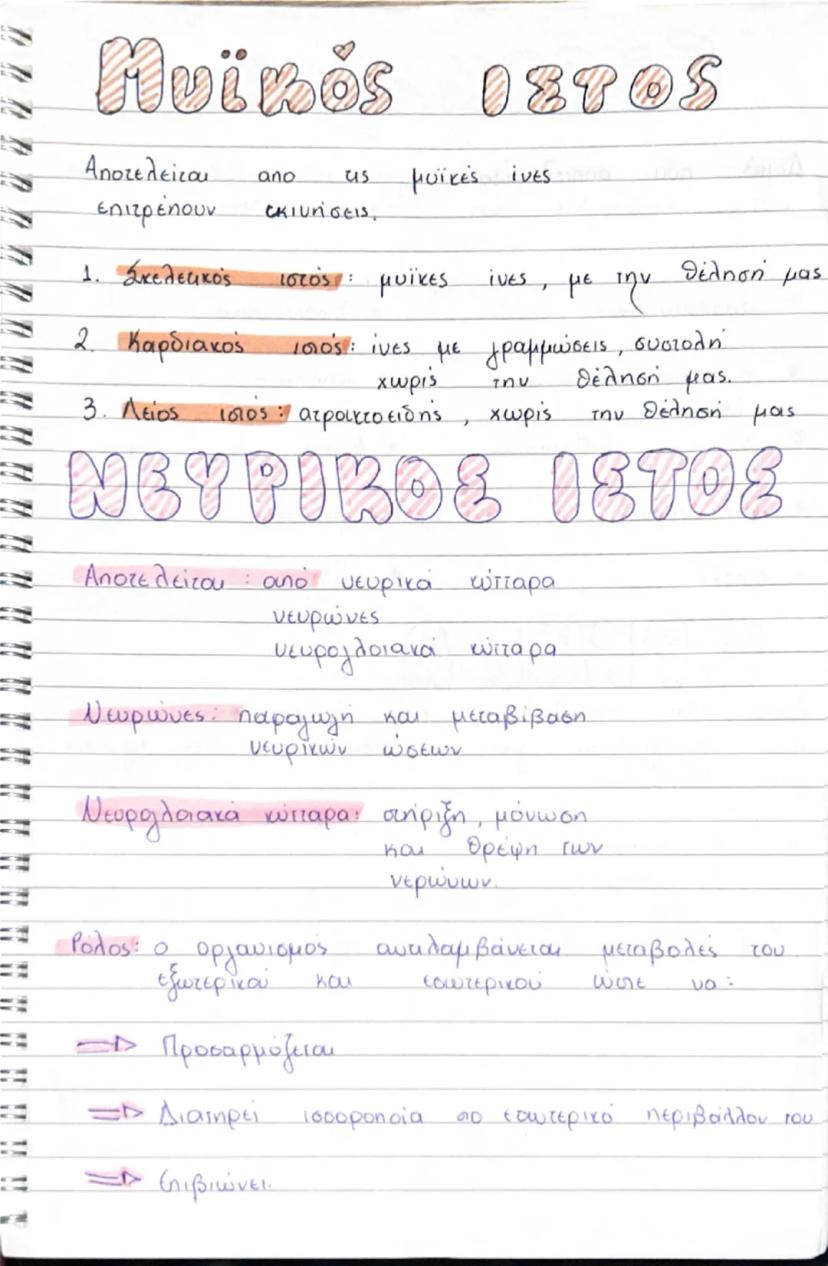 Μυϊκός ιστος
Αποτελείται απο τις μυϊκές ίνες
επιτρέπουν εκινήσεις.
1. Σκελετικός ιστός: μυϊκες ινες, με την θέλησή μας
2. Καρδιακός ιστός: ίνες με γραμμώσεις, συστολή
χωρίς την θέλησή μας.
3. Λείος ιστός: ατρακτοειδής, χωρίς την θέλησή μας
ΝΕΥΡΙΚΟΣ ΙΣΤΟΣ
Αποτελείται: από νευρικά κύτταρα
νευρώνες
νευρογλοιακά κύτταρα
Νευρώνες: παραγωγή και μεταβίβαση
νευρικών ώσεων
Νευρογλοιακά κύτταρα: στήριξη, μόνωση
και θρέψη των
νερώνων.
Ρόλος: ο οργανισμός αντιλαμβάνεται μεταβολές του
εξωτερικού και εσωτερικού ώστε να:
⇒ Προσαρμόζεται
⇒ Διατηρεί ισορροπία στο εσωτερικό περιβάλλον του
⇒ Επιβιώνει.